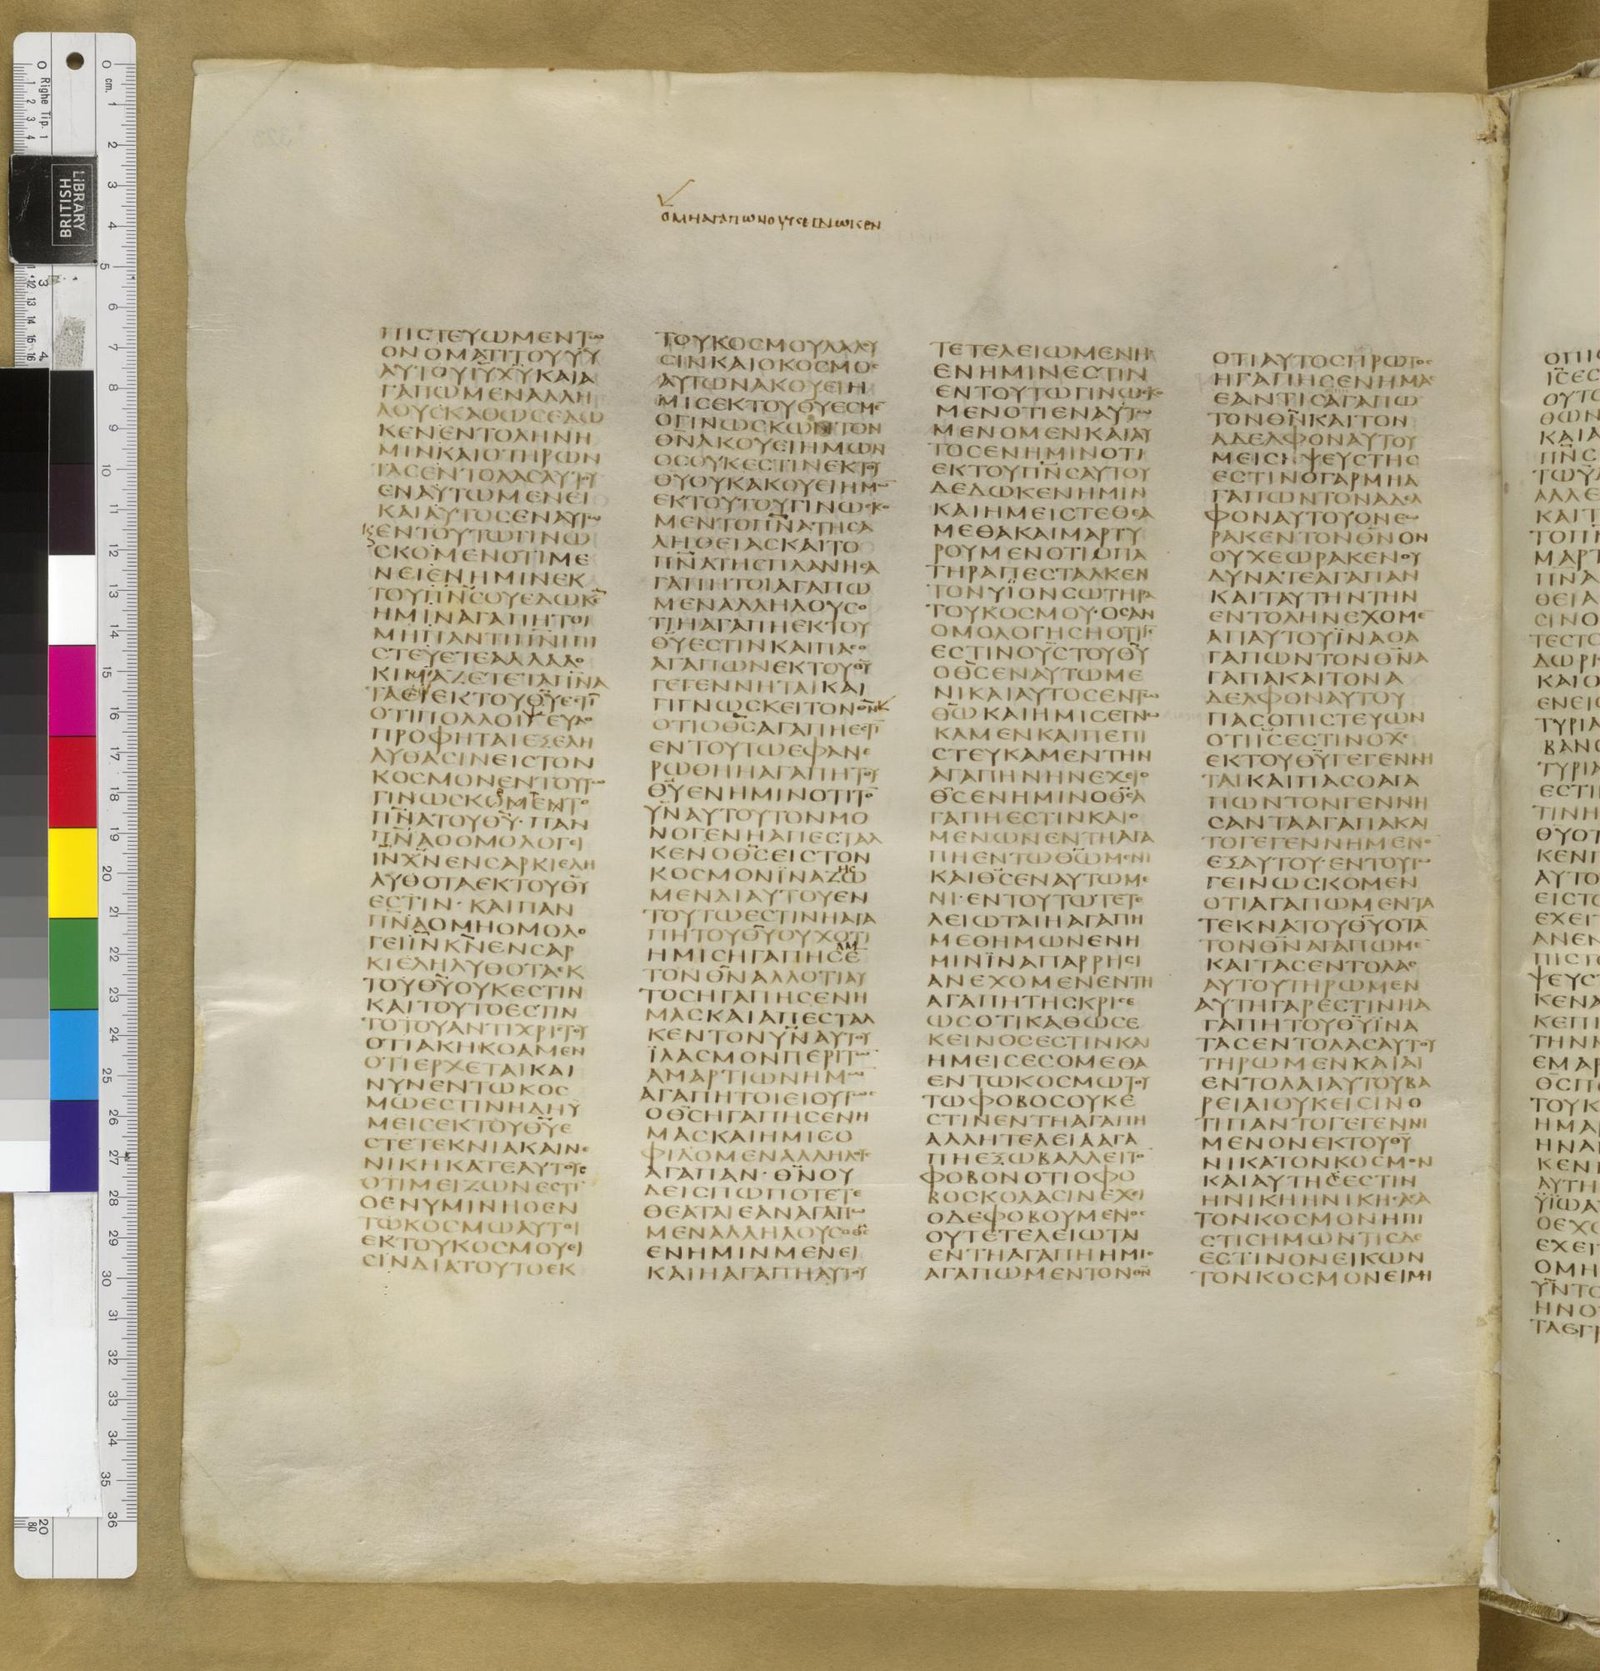 ΟΜΗΑΓΑΠΩΝΟΥΚΕΓΝΩΚΕΝ
ΠΙСΤΕΥΩΜΕΝΤΩ
ΟΝΟΜΑΤΙΤΟΥΥΥ
ΑΥΤΟΥΙΥΧΥΚΑΙΑ
ΓΑΠΩΜΕΝΑΛΛΗ
ΛΟΥСΚΑΘΩСΕΔΩ
ΚΕΝΕΝΤΟΛΗΝΗ
ΜΙΝΚΑΙΟΤΗΡΩΝ
ΤΑСΕΝΤΟΛΑСΑΥΤΟΥ
ΕΝΑΥΤΩΜΕΝΕΙ
ΚΑΙΑΥΤΟСΕΝΑΥΤΩ
ΕΝΤΟΥΤΩΓΙΝΩ
СΚΟΜΕΝΟΤΙΜΕ
ΝΕΙΕΝΗΜΙΝΕΚ
ΤΟΥΠΝСΟΥΕΔΩΚΕ
ΗΜΙΝΑΓΑΠΗΤΟΙ
ΜΗΠΑΝΤΙΠΝΙΠΙ
СΤΕΥΕΤΕΑΛΛΑΔΟ
ΚΙΜΑΖΕΤΕΤΑΠΝΑ
ΤΑΕΙΕΚΤΟΥΘΥΕСΤΙ
ΟΤΙΠΟΛΛΟΙΨΕΥΔΟ
ΠΡΟΦΗΤΑΙΕΞΕΛΗ
ΛΥΘΑСΙΝΕΙСΤΟΝ
ΚΟСΜΟΝΕΝΤΟΥΤΩ
ΓΙΝΩСΚΟΜΕΝΤΟ
ΠΝΑΤΟΥΘΥ·ΠΑΝ
ΠΝΑΟΟΜΟΛΟΓΕΙ
ΙΝΧΝΕΝСΑΡΚΙΕΛΗ
ΛΥΘΟΤΑΕΚΤΟΥΘΥ
ΕСΤΙΝ·ΚΑΙΠΑΝ
ΠΝΑΟΜΗΟΜΟΛΟ
ΓΕΙΙΝΚΝΕΝСΑΡ
ΚΙΕΛΗΛΥΘΟΤΑΕΚ
ΤΟΥΘΥΟΥΚΕСΤΙΝ
ΚΑΙΤΟΥΤΟΕСΤΙΝ
ΤΟΤΟΥΑΝΤΙΧΡΙСΤΟΥ
ΟΤΙΑΚΗΚΟΑΜΕΝ
ΟΤΙΕΡΧΕΤΑΙΚΑΙ
ΝΥΝΕΝΤΩΚΟС
ΜΩΕСΤΙΝΗΔΗΥ
ΜΕΙСΕΚΤΟΥΘΥΕ
СΤΕΤΕΚΝΙΑΚΑΙΝΕ
ΝΙΚΗΚΑΤΕΑΥΤΟΥС
ΟΤΙΜΕΙΖΩΝΕСΤΙ
ΟΕΝΥΜΙΝΗΟΕΝ
ΤΩΚΟСΜΩΑΥΤΟΙ
ΕΚΤΟΥΚΟСΜΟΥΕΙ
СΙΝΔΙΑΤΟΥΤΟΕΚ
ΤΟΥΚΟСΜΟΥΛΑΛΟΥ
СΙΝΚΑΙΟΚΟСΜΟС
ΑΥΤΩΝΑΚΟΥΕΙΗ
ΜΙСΕΚΤΟΥΘΥΕСΜΕ
ΟΓΙΝΩСΚΩΝΤΟΝ
ΘΝΑΚΟΥΕΙΗΜΩΝ
ΟСΟΥΚΕСΤΙΝΕΚΤΟΥ
ΘΥΟΥΚΑΚΟΥΕΙΗΜΩ
ΕΚΤΟΥΤΟΥΓΙΝΩСΚΟ
ΜΕΝΤΟΠΝΑΤΗСΑ
ΛΗΘΕΙΑСΚΑΙΤΟ
ΠΝΑΤΗСΠΛΑΝΗСΑ
ΓΑΠΗΤΟΙΑΓΑΠΩ
ΜΕΝΑΛΛΗΛΟΥСΟ
ΤΙΗΑΓΑΠΗΕΚΤΟΥ
ΘΥΕСΤΙΝΚΑΙΠΑСΟ
ΑΓΑΠΩΝΕΚΤΟΥΘΥ
ΓΕΓΕΝΝΗΤΑΙΚΑΙ
ΓΙΓΝΩСΚΕΙΤΟΝΘΝ
ΟΤΙΟΘСΑΓΑΠΗΕСΤΙ
ΕΝΤΟΥΤΩΕΦΑΝΕ
ΡΩΘΗΗΑΓΑΠΗΤΟΥ
ΘΥΕΝΗΜΙΝΟΤΙΤΟ
ΥΝΑΥΤΟΥΤΟΝΜΟ
ΝΟΓΕΝΗΑΠΕСΤΑΛ
ΚΕΝΟΘСΕΙСΤΟΝ
ΚΟСΜΟΝΪΝΑΖΩ
ΜΕΝΔΙΑΥΤΟΥΕΝ
ΤΟΥΤΩΕСΤΙΝΗΑΓΑ
ΠΗΤΟΥΘΥΟΥΧΟΤΙ
ΗΜΙСΗΓΑΠΗСΕ
ΤΟΝΘΝΑΛΛΟΤΙΑΥ
ΤΟСΗΓΑΠΗСΕΝΗ
ΜΑСΚΑΙΑΠΕСΤΑΛ
ΚΕΝΤΟΝΥΝΑΥΤΟΥ
ΪΛΑСΜΟΝΠΕΡΙΤΩ
ΑΜΑΡΤΙΩΝΗΜΩ
ΑΓΑΠΗΤΟΙΕΙΟΥΤΩС
ΟΘСΗΓΑΠΗСΕΝΗ
ΜΑСΚΑΙΗΜΙСΟ
ΦΙΛΟΜΕΝΑΛΛΗΛΟΥС
ΑΓΑΠΑΝ·ΘΝΟΥ
ΔΕΙСΠΩΠΟΤΕΤΕ
ΘΕΑΤΑΙΕΑΝΑΓΑΠΩ
ΜΕΝΑΛΛΗΛΟΥСΟΘС
ΕΝΗΜΙΝΜΕΝΕΙ
ΚΑΙΗΑΓΑΠΗΑΥΤΟΥ
ΤΕΤΕΛΕΙΩΜΕΝΗ
ΕΝΗΜΙΝΕСΤΙΝ
ΕΝΤΟΥΤΩΓΙΝΩСΚΟ
ΜΕΝΟΤΙΕΝΑΥΤΩ
ΜΕΝΟΜΕΝΚΑΙΑΥ
ΤΟСΕΝΗΜΙΝΟΤΙ
ΕΚΤΟΥΠΝСΑΥΤΟΥ
ΔΕΔΩΚΕΝΗΜΙΝ
ΚΑΙΗΜΕΙСΤΕΘΕΑ
ΜΕΘΑΚΑΙΜΑΡΤΥ
ΡΟΥΜΕΝΟΤΙΟΠΑ
ΤΗΡΑΠΕСΤΑΛΚΕΝ
ΤΟΝΥΪΟΝСΩΤΗΡΑ
ΤΟΥΚΟСΜΟΥ·ΟСΑΝ
ΟΜΟΛΟΓΗСΗΟΤΙΙС
ΕСΤΙΝΟΥСΤΟΥΘΥ
ΟΘСΕΝΑΥΤΩΜΕ
ΝΙΚΑΙΑΥΤΟСΕΝΤΩ
ΘΩΚΑΙΗΜΙСΕΓΝΩ
ΚΑΜΕΝΚΑΙΠΕΠΙ
СΤΕΥΚΑΜΕΝΤΗΝ
ΑΓΑΠΗΝΗΝΕΧΕΙΟ
ΘСΕΝΗΜΙΝΟΘСΑ
ΓΑΠΗΕСΤΙΝΚΑΙΟ
ΜΕΝΩΝΕΝΤΗΑΓΑ
ΠΗΕΝΤΩΘΩΜΕΝΙ
ΚΑΙΘСΕΝΑΥΤΩΜΕ
ΝΙ·ΕΝΤΟΥΤΩΤΕΤΕ
ΛΕΙΩΤΑΙΗΑΓΑΠΗ
ΜΕΘΗΜΩΝΕΝΗ
ΜΙΝΪΝΑΠΑΡΡΗСΙ
ΑΝΕΧΟΜΕΝΕΝΤΗ
ΑΓΑΠΗΤΗСΚΡΙСΕ
ΩСΟΤΙΚΑΘΩСΕ
ΚΕΙΝΟСΕСΤΙΝΚΑΙ
ΗΜΕΙСΕСΟΜΕΘΑ
ΕΝΤΩΚΟСΜΩΤΟΥ
ΤΩΦΟΒΟСΟΥΚΕ
СΤΙΝΕΝΤΗΑΓΑΠΗ
ΑΛΛΗΤΕΛΕΙΑΑΓΑ
ΠΗΕΞΩΒΑΛΛΕΙΤΟ
ΦΟΒΟΝΟΤΙΟΦΟ
ΒΟСΚΟΛΑСΙΝΕΧΕΙ
ΟΔΕΦΟΒΟΥΜΕΝΟС
ΟΥΤΕΤΕΛΕΙΩΤΑΙ
ΕΝΤΗΑΓΑΠΗΗΜΙС
ΑΓΑΠΩΜΕΝΤΟΝΘΝ
ΟΤΙΑΥΤΟСΠΡΩΤΟС
ΗΓΑΠΗСΕΝΗΜΑС
ΕΑΝΤΙСΑΓΑΠΩ
ΤΟΝΘΝΚΑΙΤΟΝ
ΑΔΕΛΦΟΝΑΥΤΟΥ
ΜΕΙСΗΨΕΥСΤΗС
ΕСΤΙΝΟΓΑΡΜΗΑ
ΓΑΠΩΝΤΟΝΑΔΕΛ
ΦΟΝΑΥΤΟΥΟΝΕΩ
ΡΑΚΕΝΤΟΝΘΝΟΝ
ΟΥΧΕΩΡΑΚΕΝΟΥ
ΔΥΝΑΤΕΑΓΑΠΑΝ
ΚΑΙΤΑΥΤΗΝΤΗΝ
ΕΝΤΟΛΗΝΕΧΟΜΕ
ΑΠΑΥΤΟΥΪΝΑΟΑ
ΓΑΠΩΝΤΟΝΘΝΑ
ΓΑΠΑΚΑΙΤΟΝΑ
ΔΕΛΦΟΝΑΥΤΟΥ
ΠΑСΟΠΙСΤΕΥΩΝ
ΟΤΙΙСΕСΤΙΝΟΧС
ΕΚΤΟΥΘΥΓΕΓΕΝΝΗ
ΤΑΙΚΑΙΠΑСΟΑΓΑ
ΠΩΝΤΟΝΓΕΝΝΗ
СΑΝΤΑΑΓΑΠΑΚΑΙ
ΤΟΓΕΓΕΝΝΗΜΕΝΟ
ΕΞΑΥΤΟΥ·ΕΝΤΟΥΤΩ
ΓΕΙΝΩСΚΟΜΕΝ
ΟΤΙΑΓΑΠΩΜΕΝΤΑ
ΤΕΚΝΑΤΟΥΘΥΟΤΑ
ΤΟΝΘΝΑΓΑΠΩΜΕ
ΚΑΙΤΑСΕΝΤΟΛΑС
ΑΥΤΟΥΤΗΡΩΜΕΝ
ΑΥΤΗΓΑΡΕСΤΙΝΗΑ
ΓΑΠΗΤΟΥΘΥΪΝΑ
ΤΑСΕΝΤΟΛΑСΑΥΤΟΥ
ΤΗΡΩΜΕΝΚΑΙΑΙ
ΕΝΤΟΛΑΙΑΥΤΟΥΒΑ
ΡΕΙΑΙΟΥΚΕΙСΙΝΟ
ΤΙΠΑΝΤΟΓΕΓΕΝΝΗ
ΜΕΝΟΝΕΚΤΟΥΘΥ
ΝΙΚΑΤΟΝΚΟСΜΟΝ
ΚΑΙΑΥΤΗΕСΤΙΝ
ΗΝΙΚΗΗΝΙΚΗСΑСΑ
ΤΟΝΚΟСΜΟΝΗΠΙ
СΤΙСΗΜΩΝΤΙСΔΕ
ΕСΤΙΝΟΝΕΙΚΩΝ
ΤΟΝΚΟСΜΟΝΕΙΜΗ